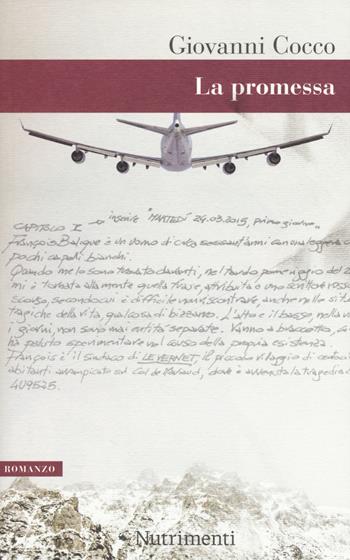 Giovanni Cocco
La promessa
CAPITOLO I inserire "MARTEDÍ 24.03.2015, primo giorno"
François Balique è un uomo di circa sessant'anni con una leggera
pochi capelli bianchi.
Quando me lo sono trovato davanti, nel tardo pomeriggio del 2
mi è tornata alla mente quella frase, attribuita a uno scrittore
secondo cui è difficile non riscontrare, anche nelle
tragiche della vita, qualcosa di bizzarro. L'alto e il basso, nella
i giorni, non sono mai entità separate. Vanno a braccetto,
ha potuto sperimentare nel corso della propria esistenza.
François è il sindaco di LE VERNET, il piccolo villaggio di
abitanti sul Col de Mariaud, dove è avvenuta la tragedia
4U9525.
ROMANZO
Nutrimenti